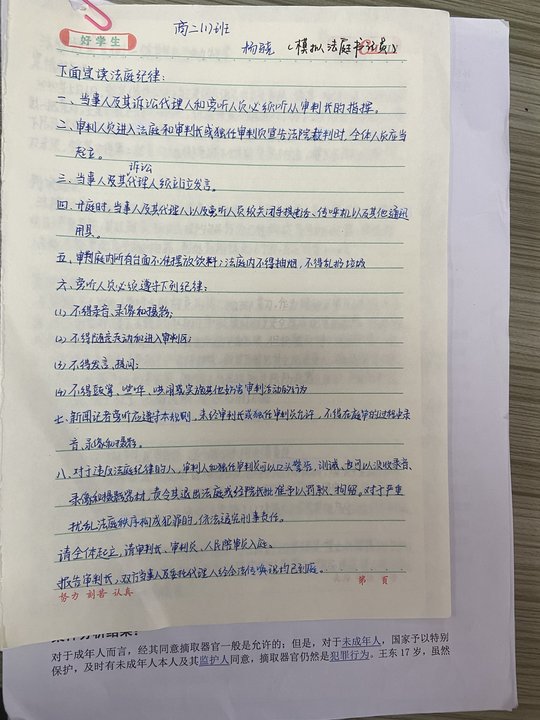 商二(1)班
好学生
杨晓 (模拟法庭书记员)
下面宣读法庭纪律:
一、当事人及其诉讼代理人和旁听人员必须听从审判长的指挥。
二、审判人员进入法庭和审判长或独任审判员宣告法院裁判时,全体人员应当
起立。
诉讼
三、当事人及其代理人须站立发言。
四、开庭时,当事人及其代理人以及旁听人员须关闭手提电话、传呼机以及其他通讯
用具。
五、审判庭内所有台面不准摆放饮料;法庭内不得抽烟,不得乱扔垃圾
六、旁听人员必须遵守下列纪律:
(1)不得录音、录像和摄影;
(2)不得随意走动和进入审判区;
(3)不得发言、提问;
(4)不得鼓掌、喧哗、哄闹或实施其他妨害审判活动的行为
七、新闻记者旁听应遵守本规则,未经审判长或独任审判员允许,不得在庭审的过程中录
音、录像和摄影。
八、对于违反法庭纪律的人,审判人和独任审判员可以口头警告、训诫,也可以没收录音、
录像和摄影器材,责令其退出法庭或经院长批准予以罚款、拘留。对于严重
扰乱法庭秩序构成犯罪的,依法追究刑事责任。
请全体起立,请审判长、审判员、人民陪审员入庭。
报告审判长,双方当事人及委托代理人经合法传唤均已到庭。
努力 刻苦 认真
第 页
对于成年人而言,经其同意摘取器官一般是允许的;但是,对于未成年人,国家予以特别
保护,及时有未成年人本人及其监护人同意,摘取器官仍然是犯罪行为。王东 17 岁,虽然